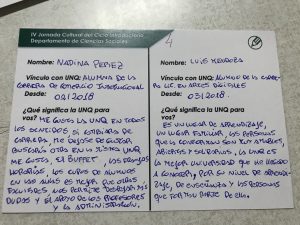 IV Jornada Cultural del Ciclo Introductorio
Departamento de Ciencias Sociales
Nombre: NADINA PEREZ
Vínculo con UNQ: ALUMNA DE LA
CARRERA DE COMERCIO INTERNACIONAL
Desde: 02/2018
¿Qué significa la UNQ para
vos? ME GUSTA LA UNQ EN TODOS
LOS SENTIDOS, SI
CARRERA, ME
OTRA EN LA MISMA UNQ
ME GUSTA, EL BUFFET, LOS
HORARIOS, LOS CUPOS DE ALUMNOS
EN LAS AULAS ES MEJOR QUE OTRAS
FACULTADES, NOS PERMITE DESPEJAR MÁS
DUDAS Y EL APOYO DE LOS PROFESORES
Y LA ADMINISTRACIÓN.
4
Nombre: LUIS MENDOZA
Vínculo con UNQ: ALUMNO DE LA CARRERA
LIC. EN ARTES DIGITALES
Desde: 03/2018
¿Qué significa la UNQ para
vos?
ES UN LUGAR DE APRENDIZAJE,
UN LUGAR FAMILIAR, LAS PERSONAS
QUE LA CONFORMAN SON MUY AMABLES,
ABIERTAS Y SOLIDARIAS, LA UNQ ES
LA MEJOR UNIVERSIDAD QUE HE LLEGADO
A CONOCER, POR SU NIVEL DE APRENDI-
ZAJE, DE ENSEÑANZA Y LAS PERSONAS
QUE FORMAN PARTE DE ELLA.